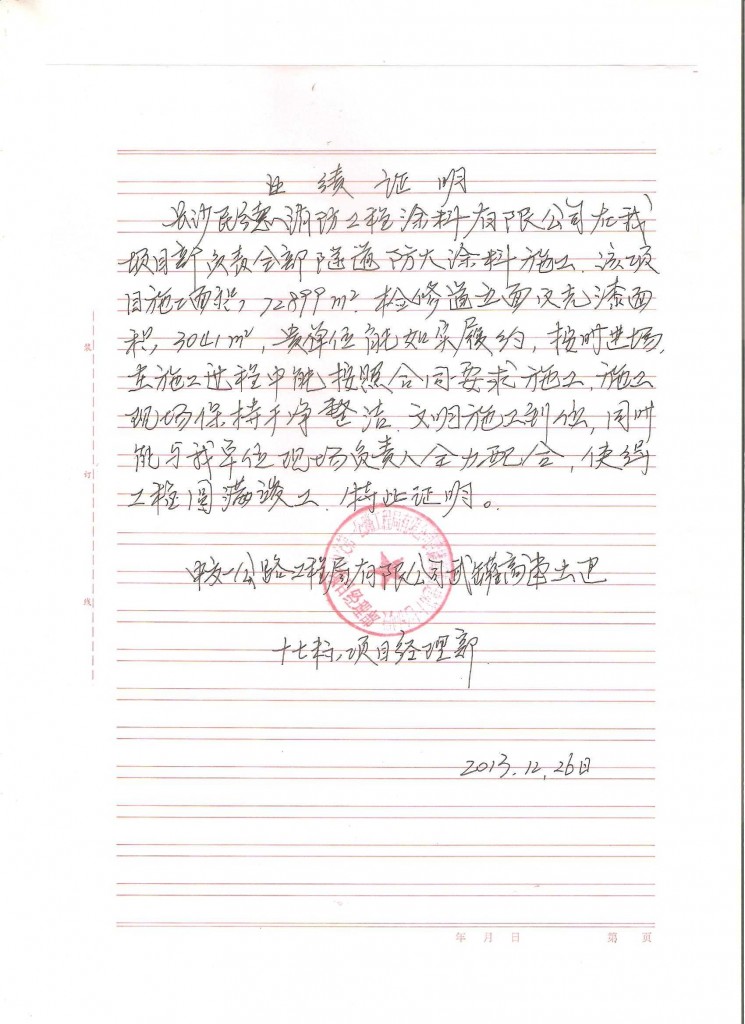 业绩证明
长沙民德消防工程涂料有限公司在我
项目部负责全部隧道防火涂料施工.该项
目施工面积,72899m².检修道立面反光漆面
积,3041m²,贵单位能如实履约,按时进场,
在施工过程中能按照合同要求施工,施工
现场保持干净整洁.文明施工到位,同时
能与我单位现场负责人全力配合,使得
工程圆满竣工.特此证明。
中交一公路工程局有限公司武罐高速土建
十七标项目经理部
2013.12.26日
装
订
线
年 月 日
第 页